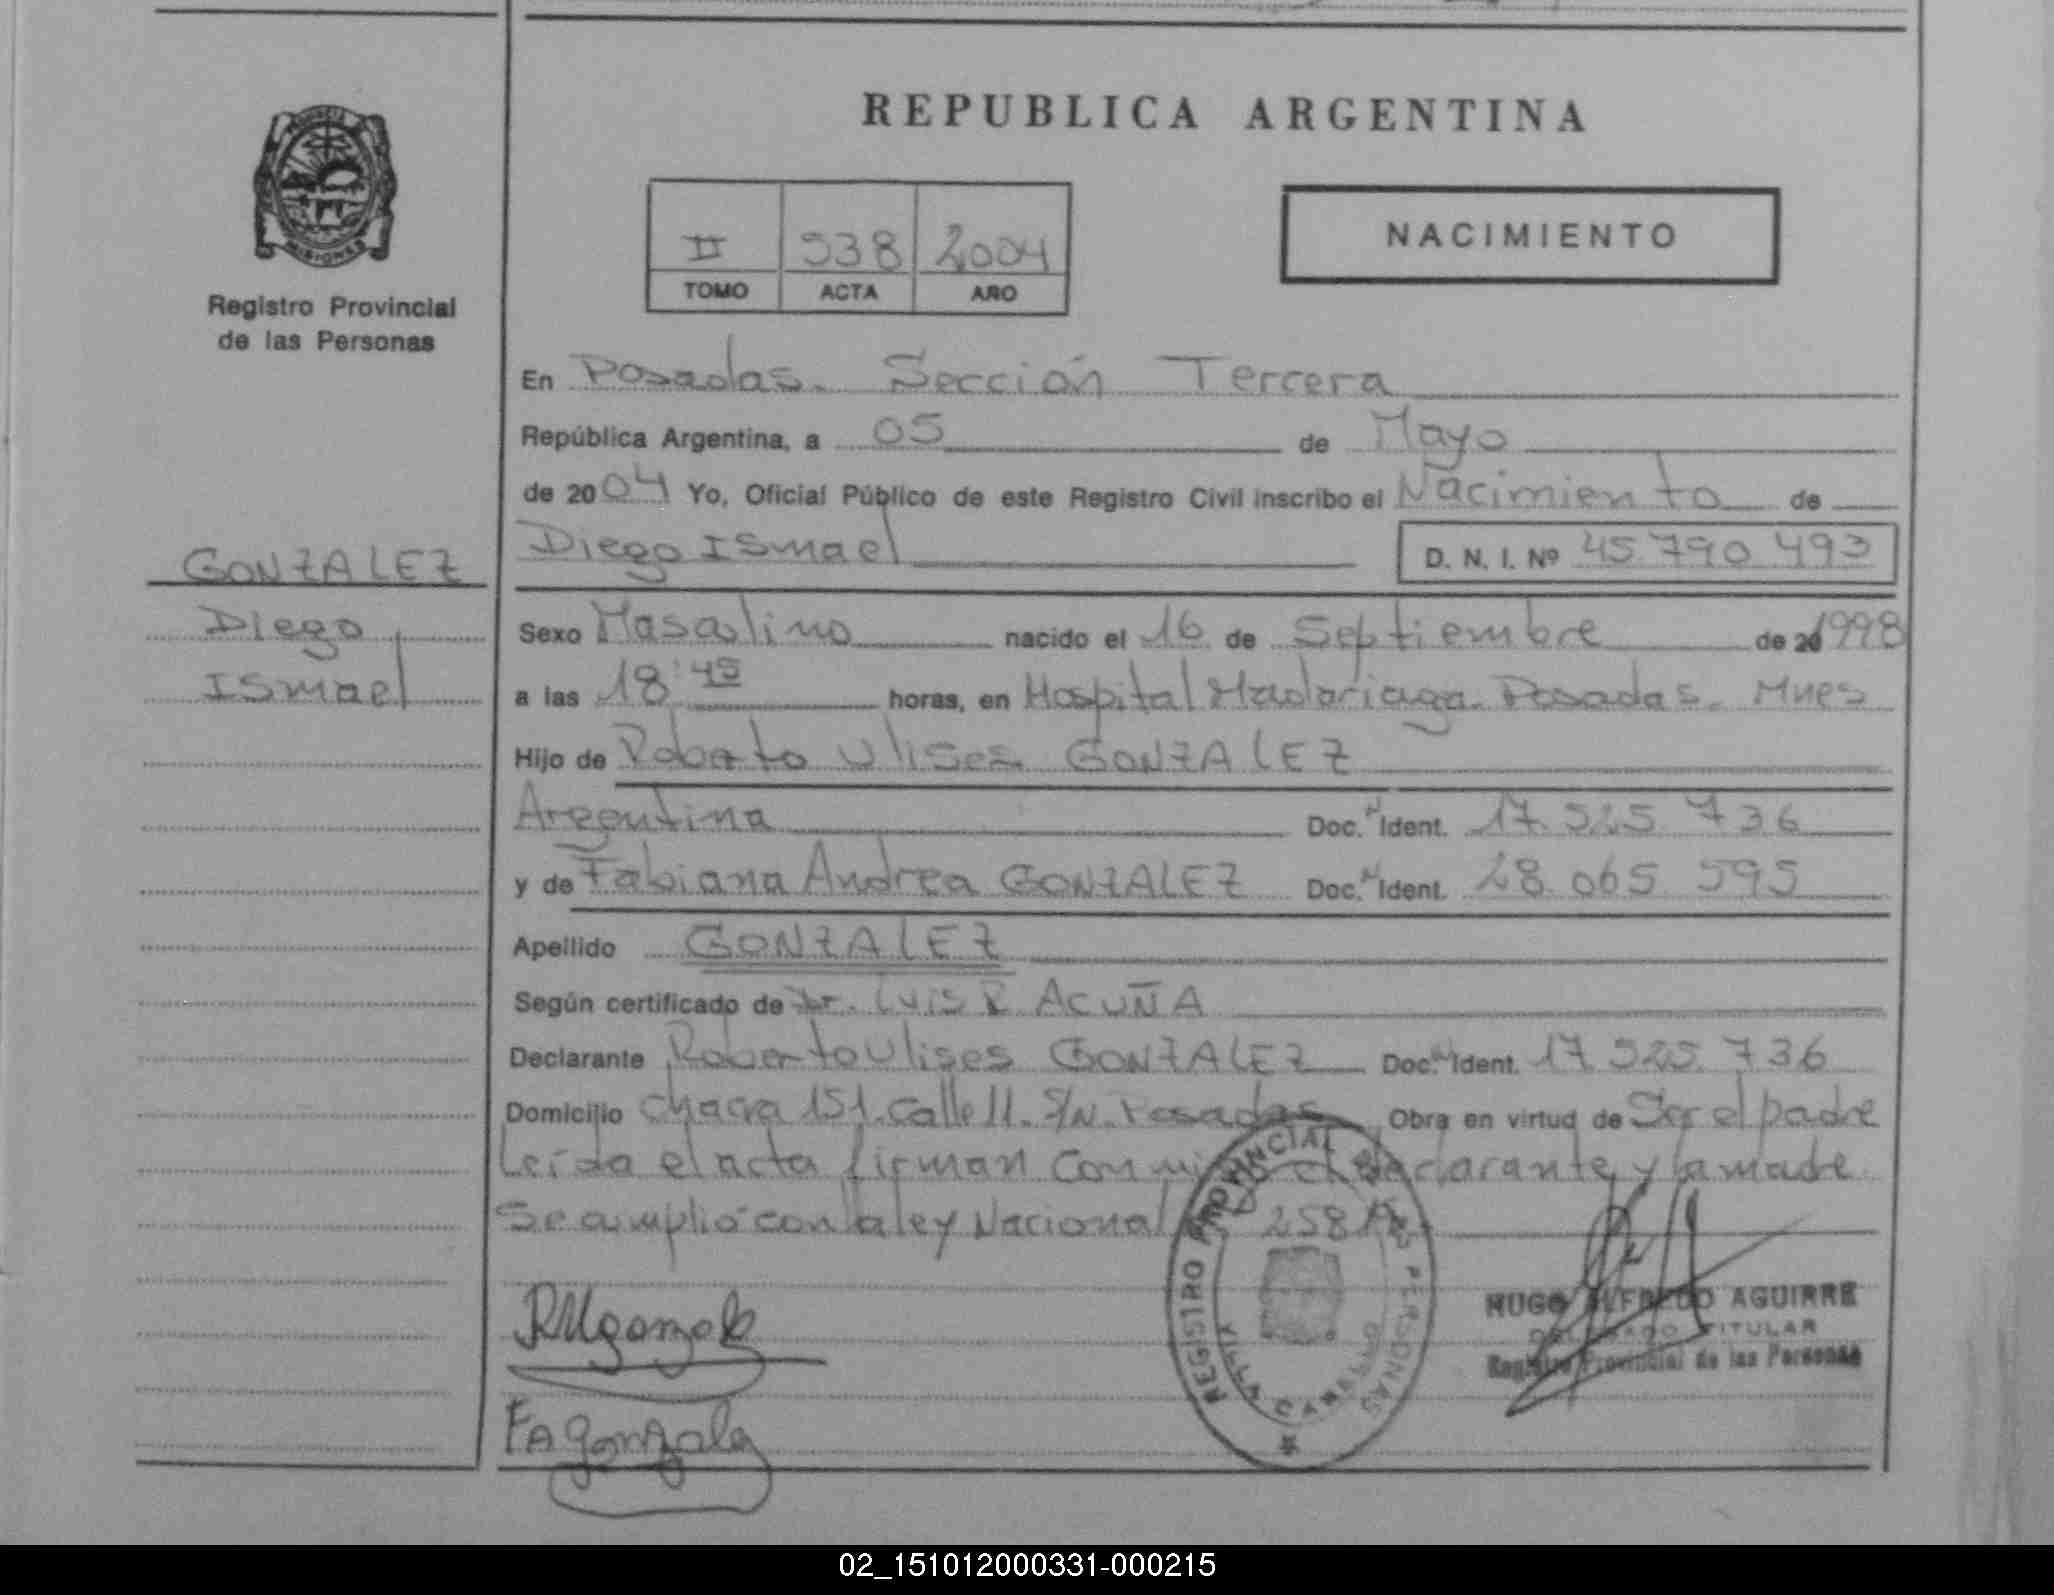 REPUBLICA ARGENTINA
PROVINCIA
MISIONES
Registro Provincial
de las Personas
II 538 2004
TOMO ACTA AÑO
NACIMIENTO
En Posadas. Sección Tercera
República Argentina, a 05 de Mayo
de 2004 Yo, Oficial Público de este Registro Civil inscribo el Nacimiento de
Diego Ismael D. N. I. Nº 45.790.493
GONZALEZ
Diego
Ismael
Sexo Masculino nacido el 16 de Septiembre de 20 1998
a las 18:45 horas, en Hospital Madariaga. Posadas. Mnes
Hijo de Roberto Ulises GONZALEZ
Argentina Doc. N Ident. 17.525.736
y de Fabiana Andrea GONZALEZ Doc. N Ident. 28.065.595
Apellido GONZALEZ
Según certificado de Dr. Luis R ACUÑA
Declarante Roberto Ulises GONZALEZ Doc. N Ident. 17.525.736
Domicilio Chacra 151. Calle 11. S/N. Posadas Obra en virtud de Ser el padre
Leída el acta firman conmigo el declarante y la madre
Se amplió con la ley Nacional
RUgonzalez
FAgonzalez
REGISTRO PROVINCIAL DE LAS PERSONAS
VILLA CABELLO
HUGO ALFREDO AGUIRRE
DELEGADO TITULAR
Registro Provincial de las Personas
02_151012000331-000215